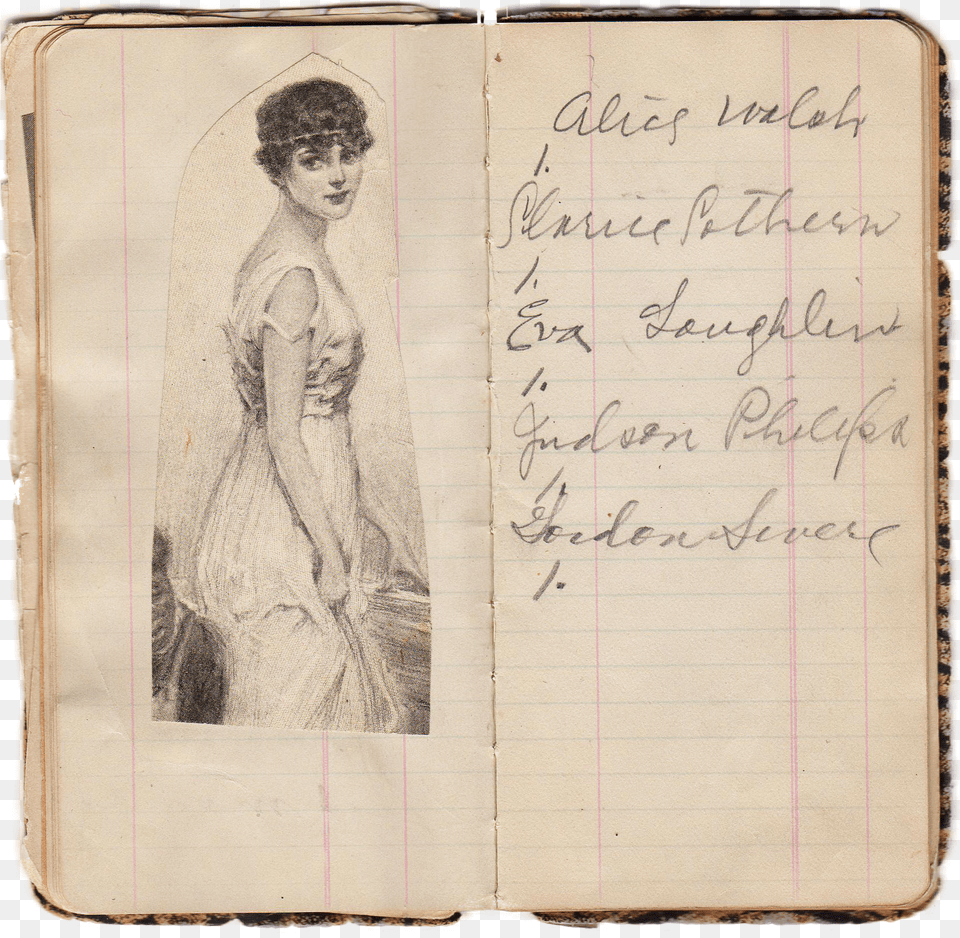 Alice Walsh
1.
Clarice Sothern
1.
Eva Loughlin
1.
Judson Philips
1.
Gordon
1.